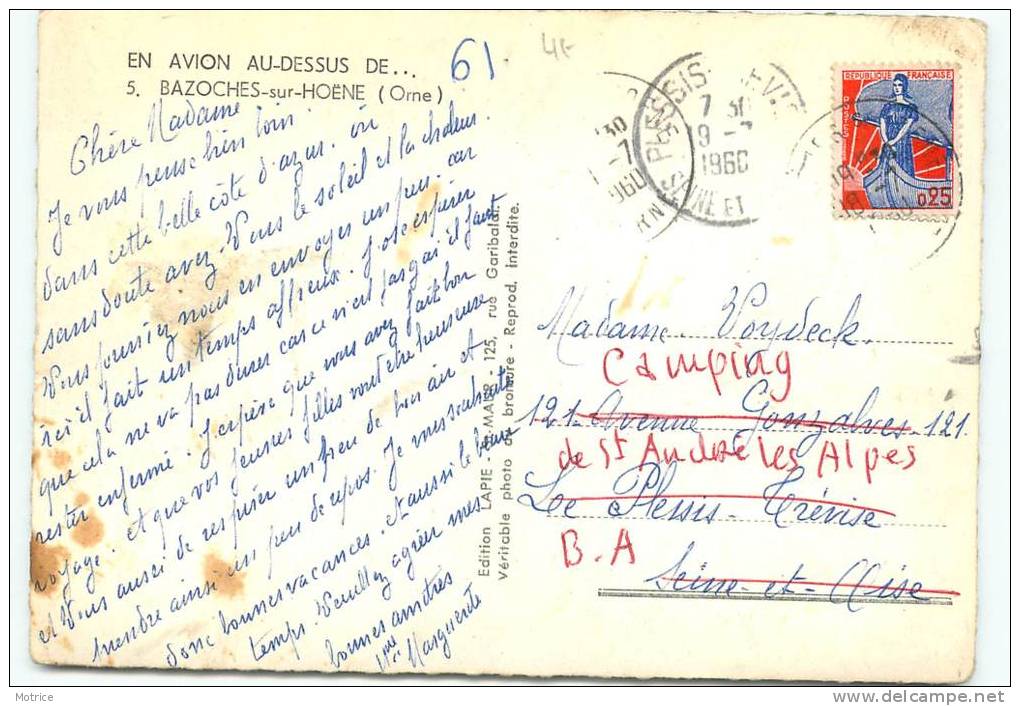 EN AVION AU-DESSUS DE...
5. BAZOCHES-sur-HOËNE (Orne)
61
4€
Chère Madame
Je vous pense bien loin
dans cette belle côte d'azur. où
sans doute avez-vous le soleil et la chaleur.
Vous pourriez nous en envoyer un peu. car
ici il fait un temps affreux. J'ose espérer
que cela ne va pas durer car ce n'est pas gai il faut
rester enfermé. J'espère que vous avez fait bon
voyage. et que vos jeunes filles vont être heureuse
et Vous aussi de respirer un peu de bon air et
prendre ainsi un peu de repos. Je vous souhaite
donc bonnes vacances. et aussi le beau
temps. Veuillez agréer mes
bonnes amitiés
Mme Marguerite
Edition LAPIE - ST-MAUR - 125, rue Garibaldi.
Véritable photo au bromure - Reprod. Interdite.
PLESSIS-TREVISE
7 30
19 -7
1960
SEINE ET
30
-7
1960
ORNE
REPUBLIQUE FRANÇAISE
POSTES
0,25
Madame Voydeck.
Camping
121 Avenue Gonzalves. 121.
de St André les Alpes
Le Plessis-Trévise
B.A
Seine-et-Oise
Motrice
http://www.delcampe.net